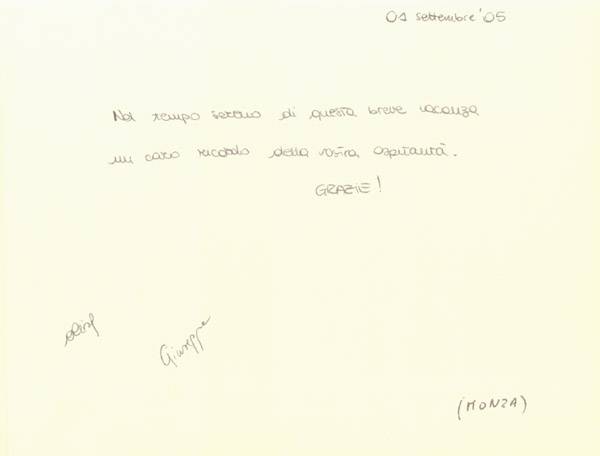 01 settembre '05
Nel tempo sereno di questa breve vacanza
un caro ricordo della vostra ospitalità.
GRAZIE!
Giuseppe
(MONZA)